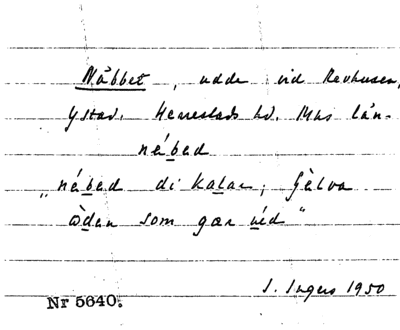 Näbbet, udde vid Revhusen,
Ystad. Herrestads hd. Mus län.
nébed
„nébed di kalar; Gèlva
öden som gær véd"
I. Ingers 1950
Nr 5640.